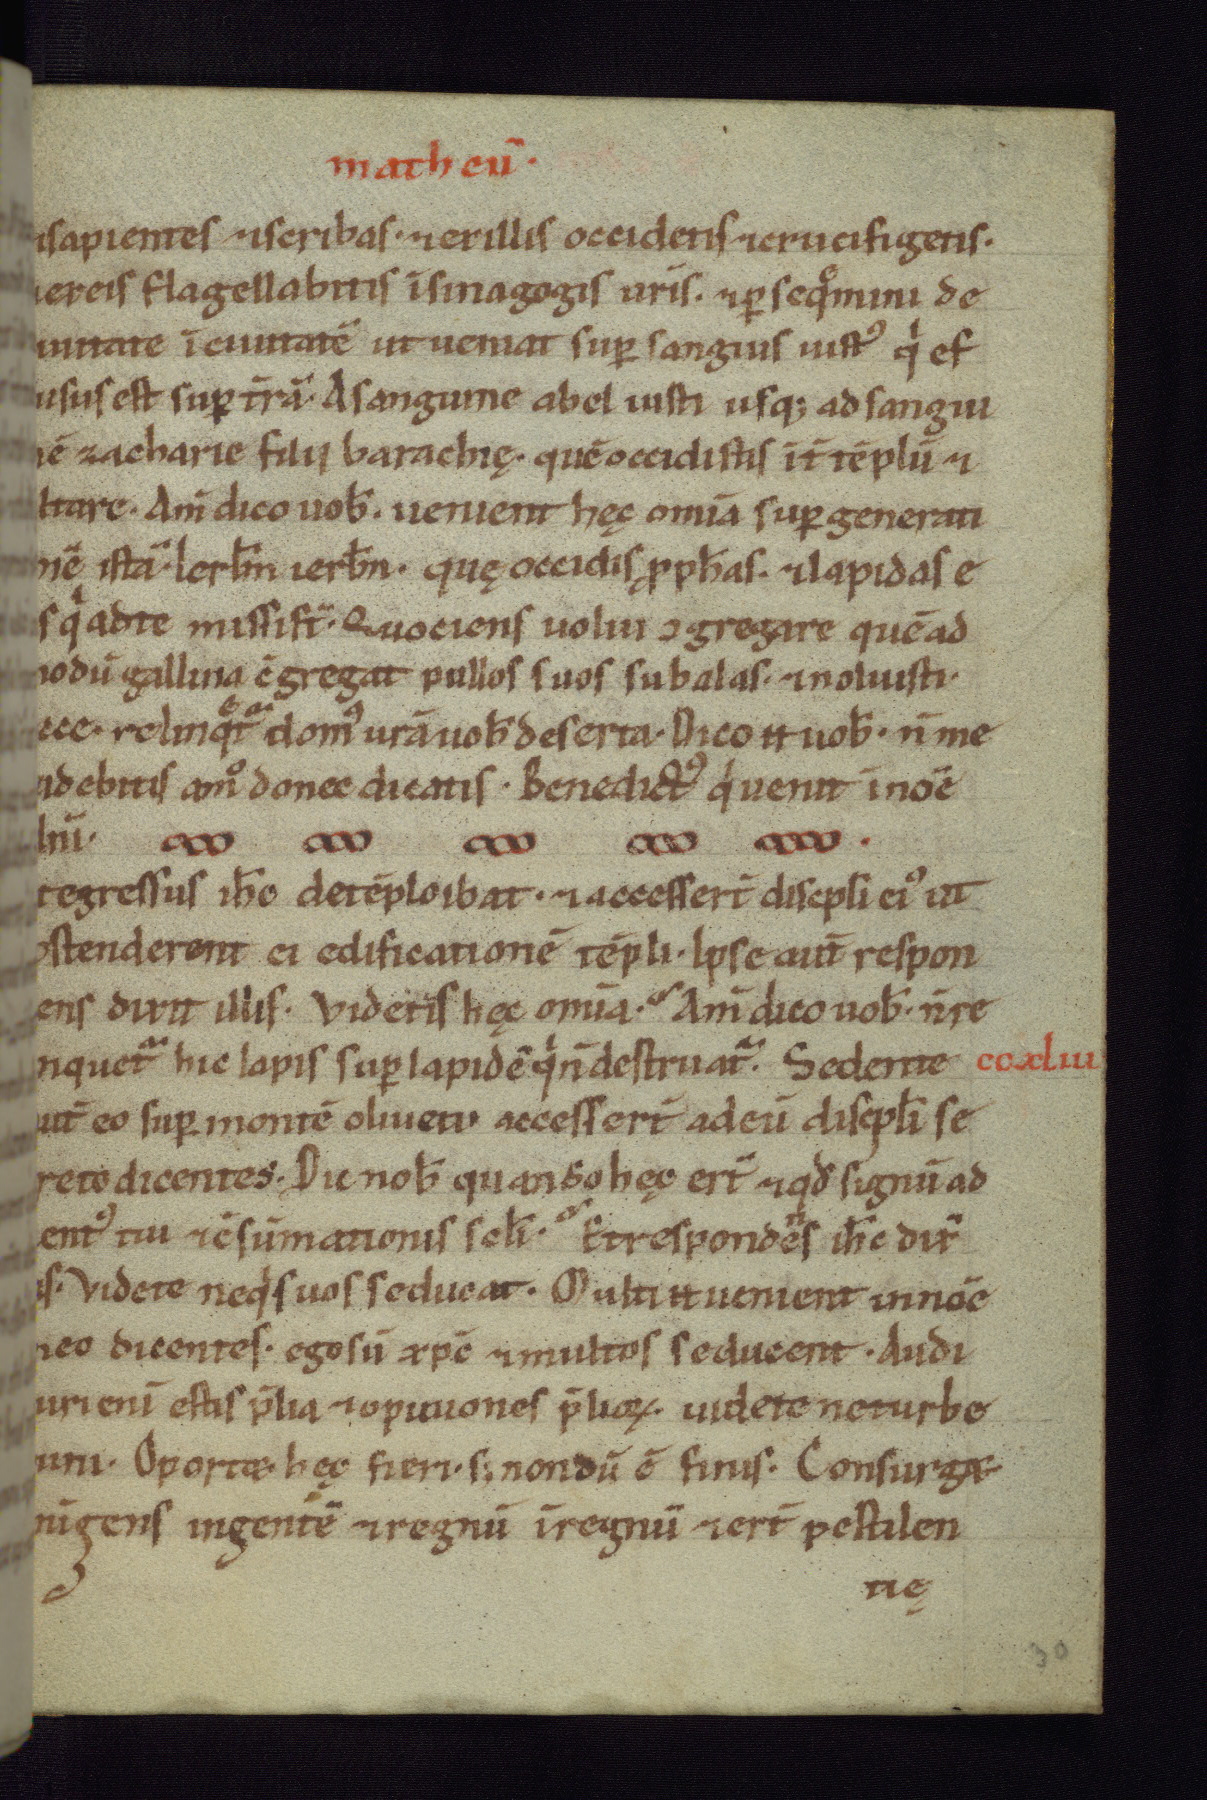 matheū·
sapientes ⁊scribas· ⁊exillis occidetis ⁊crucifigetis·
exeis flagellabitis īsinagogis ur̄is· ⁊ꝑseq̊mini de
uitate ī ciuitatē ut ueniat suꝑ sanguis iustꝰ qͥ ef
usus est suꝑ tr̄ā· Asanguine abel iusti usq; ad sangui
nē zacharie filii barachię· quē occidistis īt̄ tēplū ⁊
ltare· Am̄ dico uob̄· uenient hęc om̄ia suꝑ generati
nē istā· Ierl̄m ierl̄m· quę occidis ꝓph̄as· ⁊lapidas e
s qͥ adte missi st̄· Quociens uolui ↄgregare quēad
modū gallina c̄gregat pullos suos subalas· ⁊noluisti·
cce· relinqͤt̄ domꝰ ur̄a uob̄ deserta· Dico tt uob̄· n̄ me
idebitis am̊ donec dicatis· Benedictꝰ qͥ uenit ī noē
dn̄i·
egressus ih̄c detēplo ibat· ⁊ accesser̄t discpli eiꝰ ut
ostenderent ei edificationē tēpli· Ipse aut̄ respon
ens dixit illis· Videtis hęc om̄ia· Am̄ dico uob̄· n̄ re
nquet̄ hic lapis suꝑ lapidē qͥ n̄ destruat̄· Sedente ccxliii
ut̄ eo suꝑ montē oliueti accesser̄t adeū discpl̄i se
reto dicentes· Dic nob̄ quando hęc er̄t ⁊qd̄ signū ad
entꝰ tui ⁊c̄sūmationis sc̄li· Et respondēs ih̄c dix̄
is· Videte neqͥs uos seducat· Multi tt uenient in noē
meo dicentes· ego sū xp̄c ⁊multos seducent· Audi
uri eni estis p̄lia ⁊opiniones p̄lioꝝ· uidete ne turbe
ini· Oportet hęc fieri· s; nondū ē finis· Consurget
nī gens ingentē ⁊regnū īregnū ⁊er̄t pestilen
tię
30